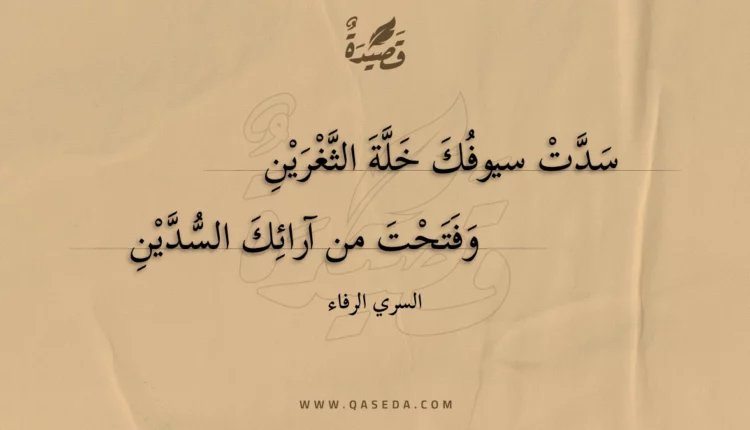 قَصِيْدَةٌ
سَدَّتْ سيوفُكَ خَلَّةَ الثَّغْرَيْنِ
وَفَتَحْتَ من آرائِكَ السُّدَّيْنِ
السري الرفاء
WWW.QASEDA.COM